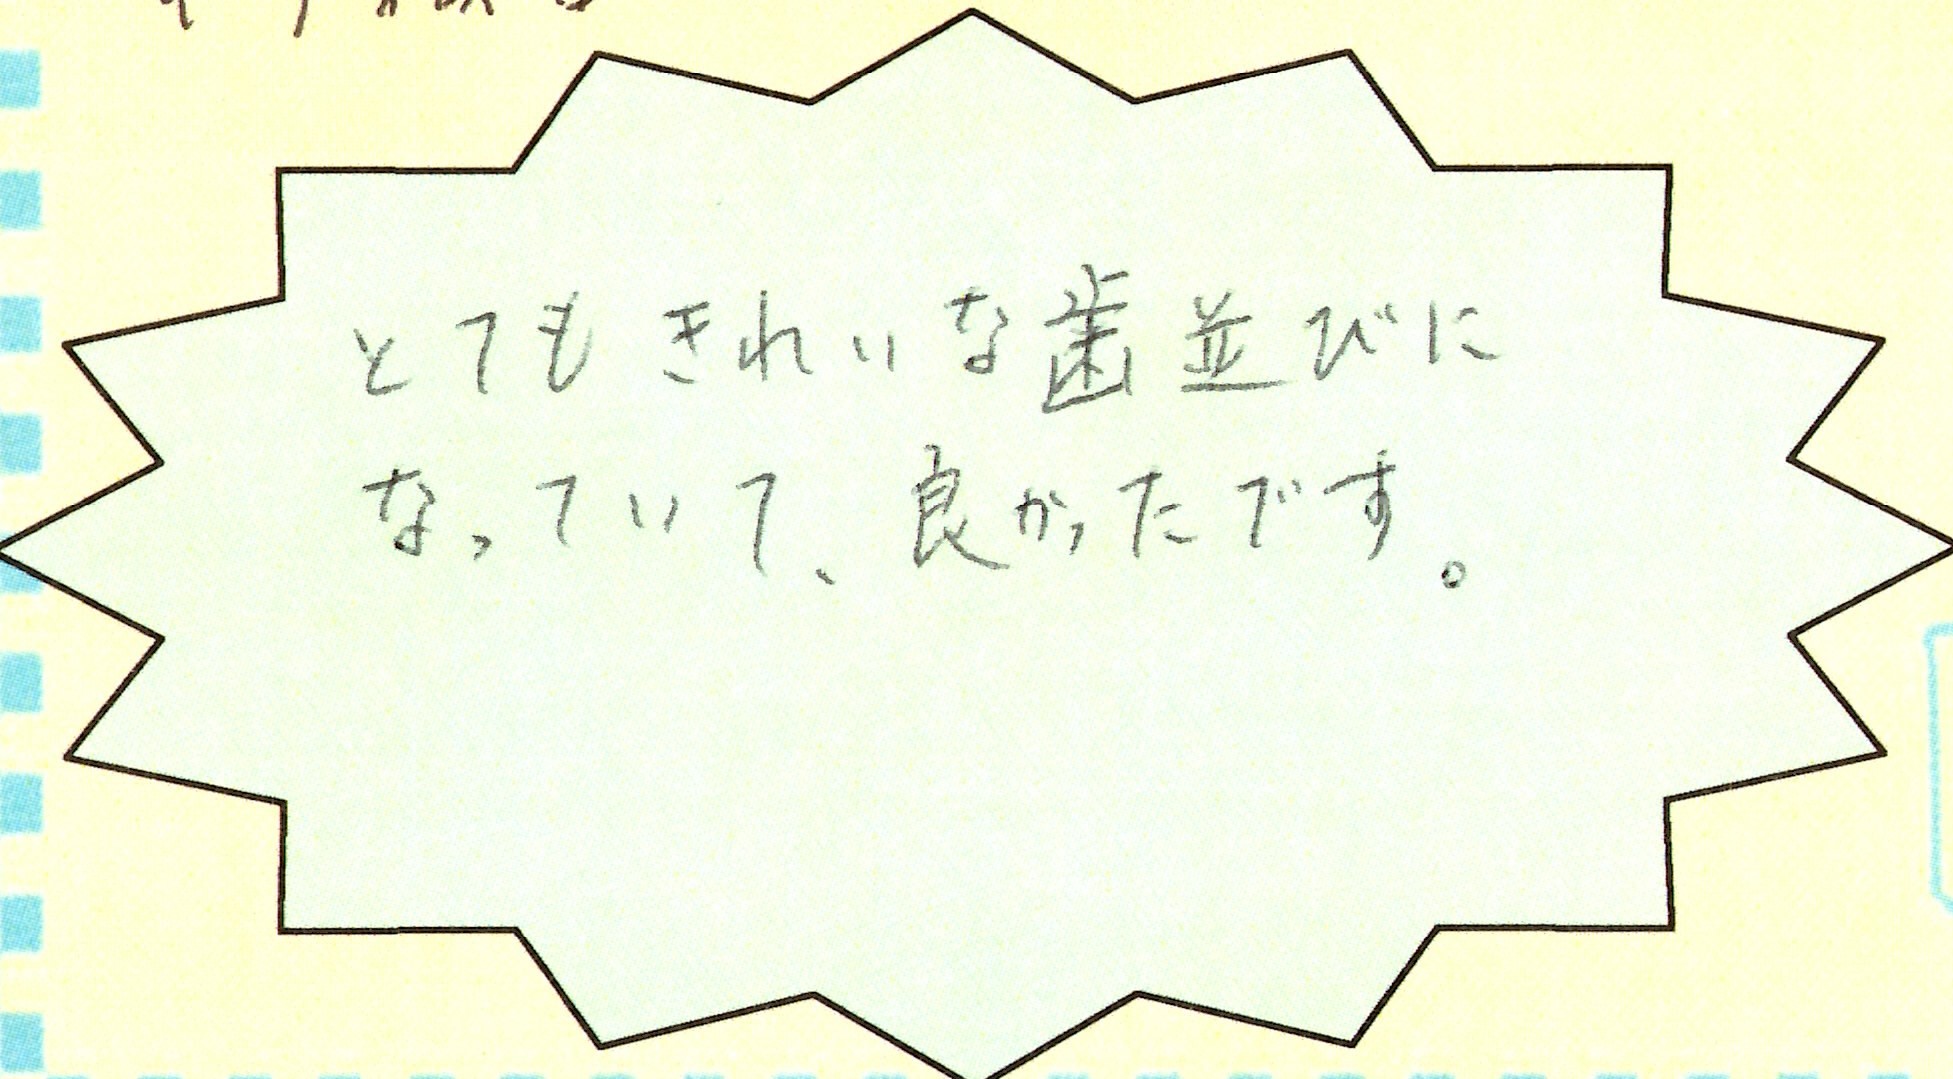 とてもきれいな歯並びに
なっていて、良かったです。